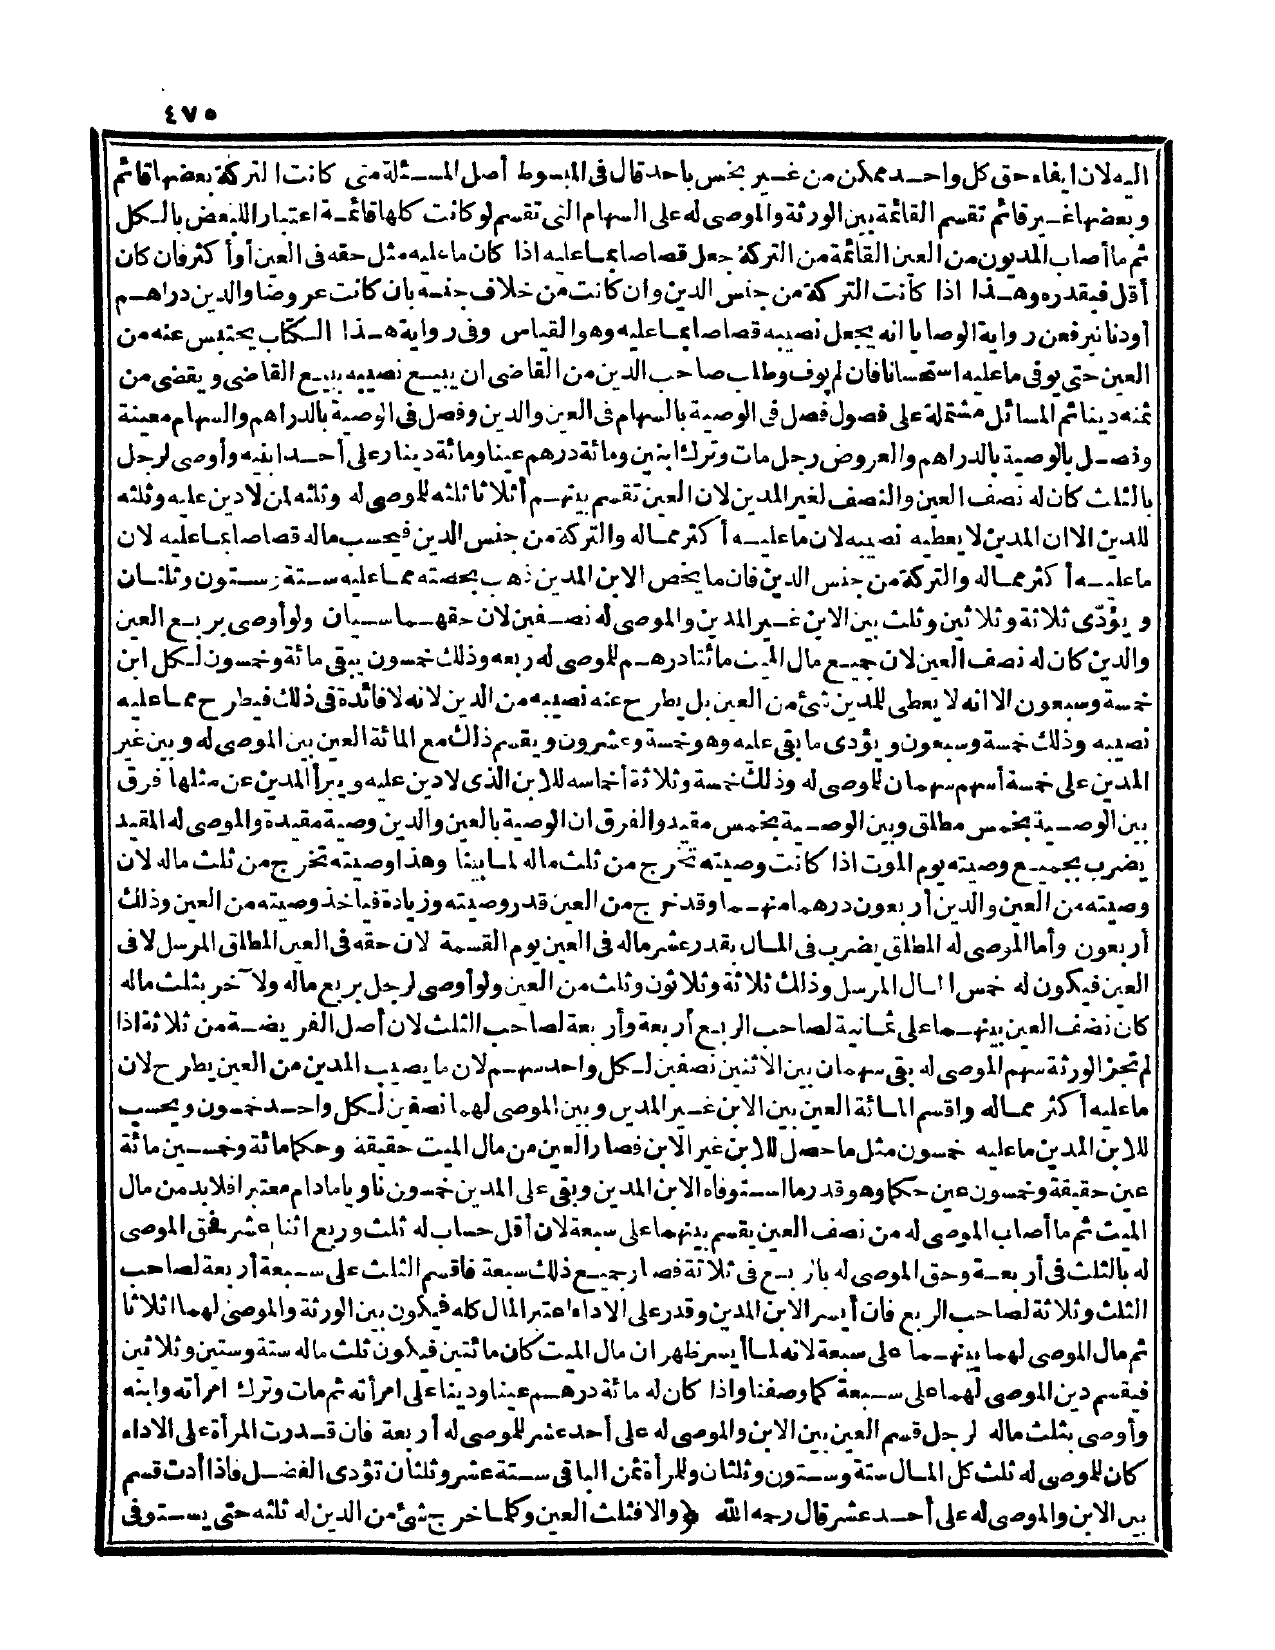 ٤٧٥
اليه لان ايفاء حق كل واحد ممكن من غير بخس باحد قال فى المبسوط أصل المسئلة متى كانت التركة بعضها قائم
وبعضها غير قائم تقسم القائمة بين الورثة والموصى له على السهام التى تقسم لو كانت كلها قائمة اعتبار اللبعض بالكل
ثم ما أصاب المديون من العين القائمة من التركة جعل قصاصا بما عليه اذا كان ما عليه مثل حقه فى العين أو أكثر فان كان
أقل فبقدره وهذا اذا كانت التركة من جنس الدين وان كانت من خلاف جنسه بان كانت عروضا والدين دراهم
أو دنانير فعن رواية الوصايا انه يجعل نصيبه قصاصا بما عليه وهو القياس وفى رواية هذا الكتاب يحتبس عنه من
العين حتى يوفى ما عليه استحسانا فان لم يوف وطلب صاحب الدين من القاضى ان يبيع نصيبه يبيع القاضى ويقضى من
ثمنه دينا ثم المسائل مشتملة على فصول فصل فى الوصية بالسهام فى العين والدين وفصل فى الوصية بالدراهم والسهام معينة
وفصل بالوصية بالدراهم والعروض رجل مات وترك ابنين ومائة درهم عينا ومائة دينار على أحد ابنيه وأوصى لرجل
بالثلث كان له نصف العين والنصف لغير المدين لان العين تقسم بينهم أثلاثا ثلثه للموصى له وثلثه لمن لا دين عليه وثلثه
للمدين الا ان المدين لا يعطيه نصيبه لان ما عليه أكثر مماله والتركة من جنس الدين فيحسب ماله قصاصا بما عليه لان
ما عليه أكثر مماله والتركة من جنس الدين فان ما يخص الابن المدين ذهب بحصته مما عليه ستة وستون وثلثان
ويؤدّى ثلاثة وثلاثين وثلث بين الابن غير المدين والموصى له نصفين لان حقهما سيان ولو أوصى بربع العين
والدين كان له نصف العين لان جميع مال الميت مائتا درهم للموصى له ربعه وذلك خمسون يبقى مائة وخمسون لكل ابن
خمسة وسبعون الا انه لا يعطى للمدين شئ من العين بل يطرح عنه نصيبه من الدين لانه لا فائدة فى ذلك فيطرح مما عليه
نصيبه وذلك خمسة وسبعون ويؤدى ما بقى عليه وهو خمسة وعشرون ويقسم ذلك مع المائة العين بين الموصى له وبين غير
المدين على خمسة أسهم سهمان للموصى له وذلك خمسة وثلاثة أخماسه للابن الذى لا دين عليه ويبرأ المدين عن مثلها فرق
بين الوصية بخمس مطلق وبين الوصية بخمس مقيد والفرق ان الوصية بالعين والدين وصية مقيدة والموصى له المقيد
يضرب بجميع وصيته يوم الموت اذا كانت وصيته تخرج من ثلث ماله لما بينا وهذا وصيته تخرج من ثلث ماله لان
وصيته من العين والدين أربعون درهما منهما وقد خرج من العين قدر وصيته وزيادة فياخذ وصيته من العين وذلك
أربعون وأما الموصى له المطلق يضرب فى المال بقدر عشر ماله فى العين يوم القسمة لان حقه فى العين المطلق المرسل لا فى
العين فيكون له خمس المال المرسل وذلك ثلاثة وثلاثون وثلث من العين ولو أوصى لرجل بربع ماله ولآخر بثلث ماله
كان نصف العين بينهما على ثمانية لصاحب الربع أربعة وأربعة لصاحب الثلث لان أصل الفريضة من ثلاثة اذا
لم تجز الورثة سهم الموصى له بقى سهمان بين الاثنين نصفين لكل واحد سهم لان ما يصيب المدين من العين يطرح لان
ما عليه أكثر مماله واقسم المائة العين بين الابن غير المدين وبين الموصى لهما نصفين لكل واحد خمسون ويحسب
للابن المدين ما عليه خمسون مثل ما حصل للابن غير الابن فصار العين من مال الميت حقيقة وحكما مائة وخمسين مائة
عين حقيقة وخمسون عين حكما وهو قدر ما استوفاه الابن المدين وبقى على المدين خمسون ناويا مادام معتبرا فلابد من مال
الميت ثم ما أصاب الموصى له من نصف العين يقسم بينهما على سبعة لان أقل حساب له ثلث وربع اثنا عشر فحق الموصى
له بالثلث فى أربعة وحق الموصى له بالربع فى ثلاثة فصار جميع ذلك سبعة فاقسم الثلث على سبعة أربعة لصاحب
الثلث وثلاثة لصاحب الربع فان أيسر الابن المدين وقدر على الاداء اعتبر المال كله فيكون بين الورثة والموصى لهما اثلاثا
ثم مال الموصى لهما بينهما على سبعة لانه لما أيسر ظهر ان مال الميت كان مائتين فيكون ثلث ماله ستة وستين وثلاثين
فيقسم دين الموصى لهما على سبعة كما وصفنا واذا كان له مائة درهم عينا ودينا على امرأته ثم مات وترك امرأته وابنه
وأوصى بثلث ماله لرجل قسم العين بين الابن والموصى له على أحد عشر للموصى له أربعة فان قدرت المرأة على الاداء
كان للموصى له ثلث كل المال ستة وستون وثلثان وللمرأة ثمن الباقى ستة عشر وثلثان تؤدى الفضل فاذا أدت قسم
بين الابن والموصى له على أحد عشر قال رحمه الله ﴿والا فثلث العين وكلما خرج شئ من الدين له ثلثه حتى يستوفى